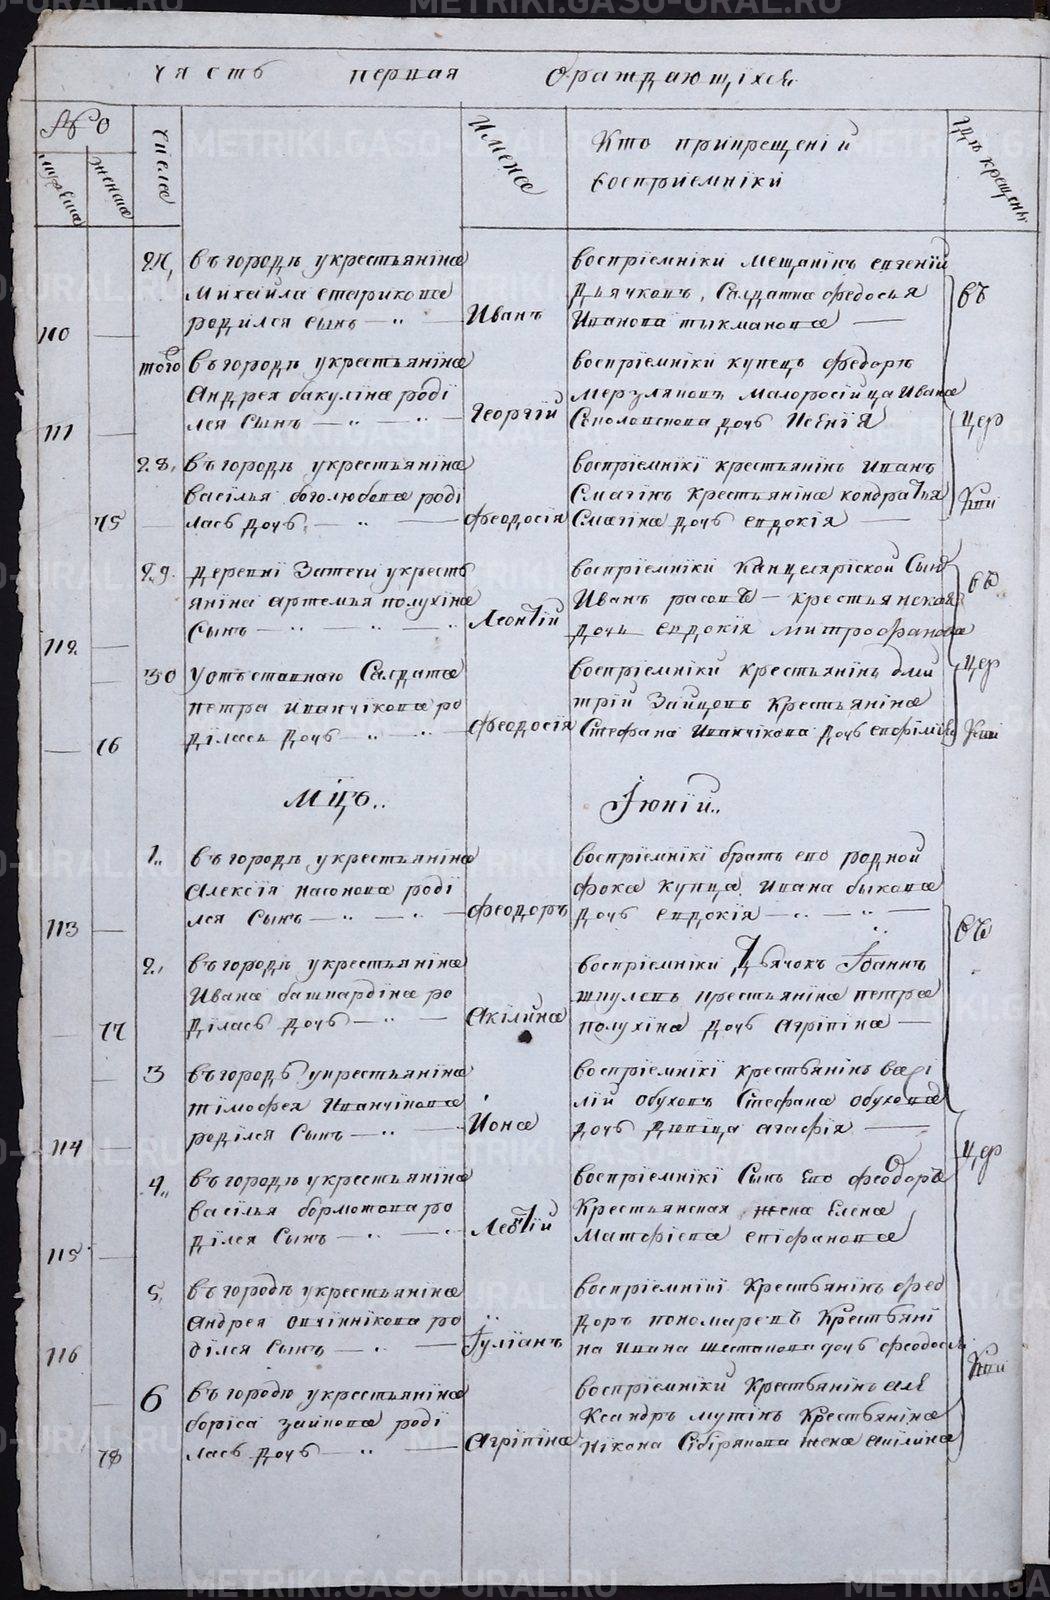 Часть первая О раждающихся
№ о
мужеска
женска
Числа
Имена
Кто при крещеніи
восприемники
Гдѣ крещены
27, въ городѣ у крестьянїна
Михайла старикова
родился сынъ
110
Иванъ
восприемники мещанинъ евгений
Дьячковъ, Салдатка федосья
Иванова тыкманова
въ
того въ городѣ у крестьянїна
Андрея бакулїна родї
лся сынъ
111
Георгїй
восприемники купецъ федоръ
мерзляковъ малоросїйца Ивана
Соколовскова дочь Ксенїя
цер
28, въ городѣ у крестьянїна
василья боголюбова родї
лась дочь
75
Феодосїя
восприемнїкї крестьянїнъ иванъ
Смагїнъ крестьянїна кондратья
Смагїна дочь евдокїя
кви
29. деревнї Затечи у кресть
янїна артемья полухїна
Сынъ
112
Леонтїй
восприемники Канцелярїской Сынъ
Иванъ расовъ крестьянская
дочь евдокїя митрофанова
въ
30 у отъставнаго Салдата
петра иванчїкова ро
дїлась дочь
76
Феодосїя
восприемники крестьянїнъ дми
трїй Зайцовъ крестьянїна
Стефана Иванчїкова дочь евфїмїя
цер
кви
Мцъ.. Їюнїй..
1.. въ городѣ у крестьянїна
Алексїя насонова родї
лся сынъ
113
Феодоръ
восприемнїкї братъ его родной
фока купца Ивана быкова
дочь евдокїя
въ
2., въ городѣ у крестьянїна
Ивана башкардїна ро
дїлась дочь
77
Акїлина
восприемники Дьячокъ Їоаннъ
шкулевъ крестьянїна петра
полухїна дочь агрїпїна
3 въ городѣ у крестьянїна
тїмофея Иванчїкова
родїлся Сынъ
114
Иона
восприемнїкї крестьянїнъ васї
лїй обуховъ Стефана обухова
дочь дѣвїца агафїя
цер
4,, въ городѣ у крестьянїна
василья бормотова ро
дїлся Сынъ
115
Леѡнтїй
восприемнїкї Сынъ Его феодоръ
Крестьянская жена Елена
Матфїева епїфанова
5, въ городѣ у крестьянїна
Андрея овчїннїкова ро
дїлся Сынъ
116
Їулїанъ
восприемнїкї Крестьянїнъ фео
доръ пономаревъ Крестьянї
на ивана шестакова дочь феодосья
кви
6 въ городѣ у крестьянїна
борїса зайкова родї
лась дочь
78
Агрїпїна
восприемники Крестьянїнъ але
ксандръ мутїнъ крестьянїна
Нїкона Сїбїрякова жена акїлина